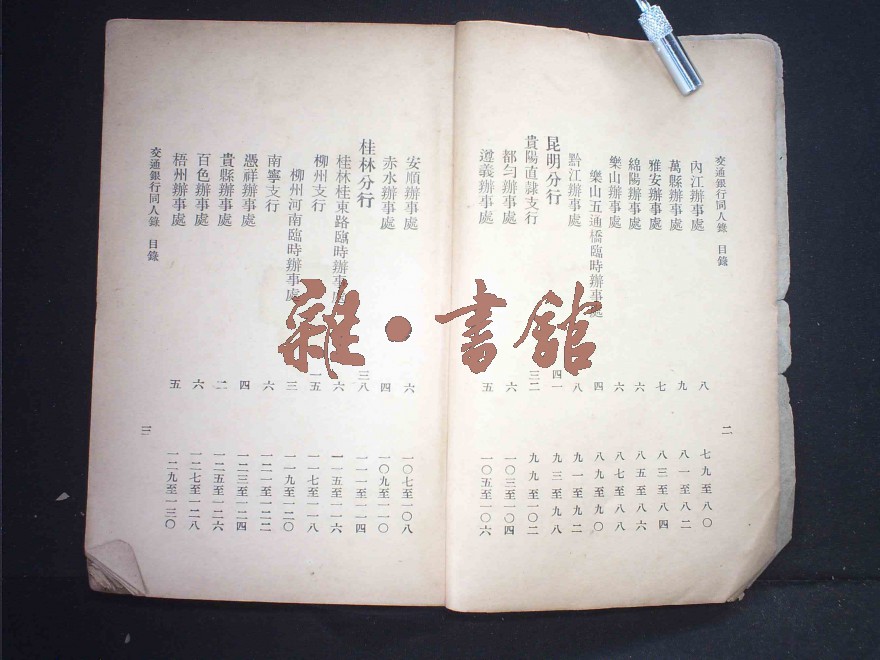 交通銀行同人錄 目錄
二
內江辦事處 八 七九至八〇
萬縣辦事處 九 八一至八二
雅安辦事處 七 八三至八四
綿陽辦事處 六 八五至八六
樂山辦事處 六 八七至八八
樂山五通橋臨時辦事處 四 八九至九〇
黔江辦事處 八 九一至九二
昆明分行 四一 九三至九八
貴陽直隷支行 三二 九九至一〇二
都勻辦事處 六 一〇三至一〇四
遵義辦事處 五 一〇五至一〇六
安順辦事處 六 一〇七至一〇八
赤水辦事處 四 一〇九至一一〇
桂林分行 三八 一一一至一一四
桂林桂東路臨時辦事處 六 一一五至一一六
柳州支行 一五 一一七至一一八
柳州河南臨時辦事處 三 一一九至一二〇
南寧支行 六 一二一至一二二
憑祥辦事處 四 一二三至一二四
貴縣辦事處 二 一二五至一二六
百色辦事處 六 一二七至一二八
梧州辦事處 五 一二九至一三〇
交通銀行同人錄 目錄
三
雜·書館